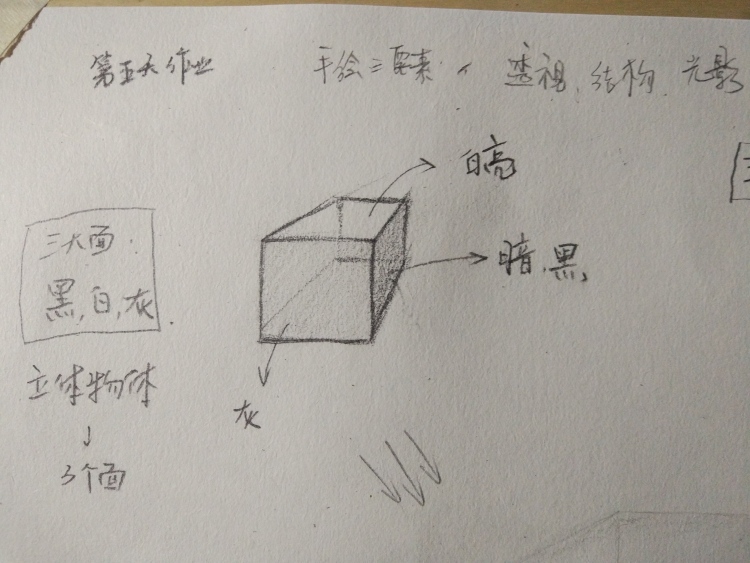 第五天作业
手绘三要素、透视、结构、光影
白高
三大面.
黑,白,灰.
暗.黑
立体物体
↓
3个面
灰